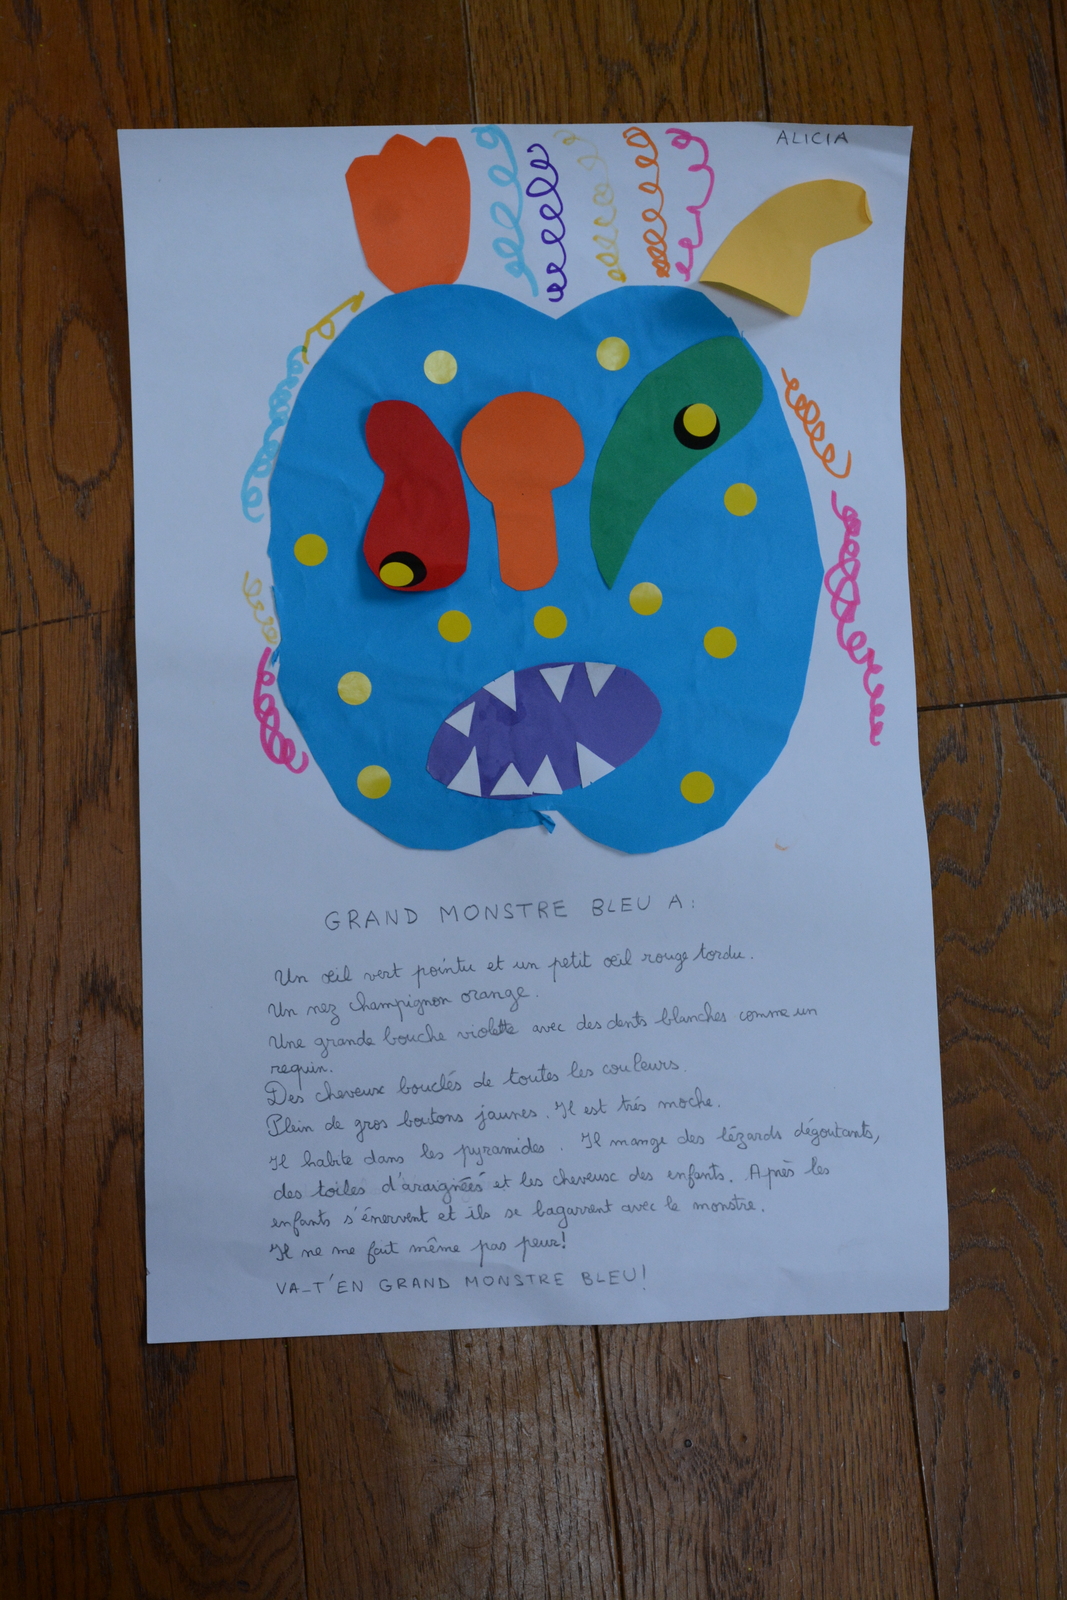 ALICIA
GRAND MONSTRE BLEU A:
Un œil vert pointu et un petit œil rouge tordu.
Un nez champignon orange.
Une grande bouche violette avec des dents blanches comme un
requin.
Des cheveux bouclés de toutes les couleurs.
Plein de gros boutons jaunes. Il est trés moche.
Il habite dans les pyramides. Il mange des lézards dégoutants,
des toiles d'araignées et les cheveux des enfants. Après les
enfants s'énervent et ils se bagarrent avec le monstre.
Il ne me fait même pas peur!
VA-T'EN GRAND MONSTRE BLEU!